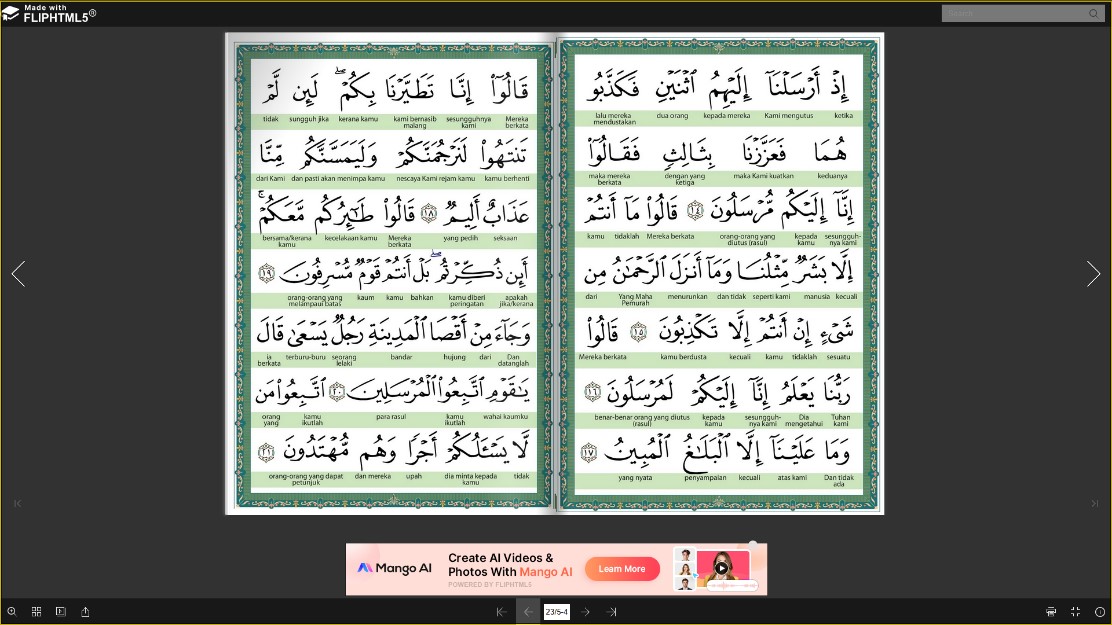 Made with
FLIPHTML5
Search
إِذْ أَرْسَلْنَآ إِلَيْهِمُ ٱثْنَيْنِ فَكَذَّبُو
ketika Kami mengutus kepada mereka dua orang lalu mereka mendustakan
هُمَا فَعَزَّزْنَا بِثَالِثٍ فَقَالُوٓا۟
keduanya maka Kami kuatkan dengan yang ketiga maka mereka berkata
إِنَّآ إِلَيْكُم مُّرْسَلُونَ ١٤ قَالُوا۟ مَآ أَنتُمْ
sesungguh-nya kami kepada kamu orang-orang yang diutus (rasul) Mereka berkata tidaklah kamu
إِلَّا بَشَرٌ مِّثْلُنَا وَمَآ أَنزَلَ ٱلرَّحْمَٰنُ مِن
kecuali manusia seperti kami dan tidak menurunkan Yang Maha Pemurah dari
شَىْءٍ إِنْ أَنتُمْ إِلَّا تَكْذِبُونَ ١٥ قَالُوا۟
sesuatu tidaklah kamu kecuali kamu berdusta Mereka berkata
رَبُّنَا يَعْلَمُ إِنَّآ إِلَيْكُمْ لَمُرْسَلُونَ ١٦
Tuhan kami Dia mengetahui sesungguh-nya kami kepada kamu benar-benar orang yang diutus (rasul)
وَمَا عَلَيْنَآ إِلَّا ٱلْبَلَٰغُ ٱلْمُبِينُ ١٧
Dan tidak ada atas kami kecuali penyampaian yang nyata
قَالُوٓا۟ إِنَّا تَطَيَّرْنَا بِكُمْ ۖ لَئِن لَّمْ
Mereka berkata sesungguhnya kami kami bernasib malang kerana kamu sungguh jika tidak
تَنتَهُوا۟ لَنَرْجُمَنَّكُمْ وَلَيَمَسَّنَّكُم مِّنَّا
kamu berhenti nescaya Kami rejam kamu dan pasti akan menimpa kamu dari Kami
عَذَابٌ أَلِيمٌ ١٨ قَالُوا۟ طَٰٓئِرُكُم مَّعَكُمْ ۚ
seksaan yang pedih Mereka berkata kecelakaan kamu bersama/kerana kamu
أَئِن ذُكِّرْتُم ۚ بَلْ أَنتُمْ قَوْمٌ مُّسْرِفُونَ ١٩
apakah jika/kerana kamu diberi peringatan bahkan kamu kaum orang-orang yang melampaui batas
وَجَآءَ مِنْ أَقْصَا ٱلْمَدِينَةِ رَجُلٌ يَسْعَىٰ قَالَ
Dan datanglah dari hujung bandar seorang lelaki terburu-buru ia berkata
يَٰقَوْمِ ٱتَّبِعُوا۟ ٱلْمُرْسَلِينَ ٢٠ ٱتَّبِعُوا۟ مَن
wahai kaumku kamu ikutlah para rasul kamu ikutlah orang yang
لَّا يَسْـَٔلُكُمْ أَجْرًا وَهُم مُّهْتَدُونَ ٢١
tidak dia minta kepada kamu upah dan mereka orang-orang yang dapat petunjuk
Mango AI
Create AI Videos &
Photos With Mango AI
POWERED BY FLIPHTML5
Learn More
23/5-4